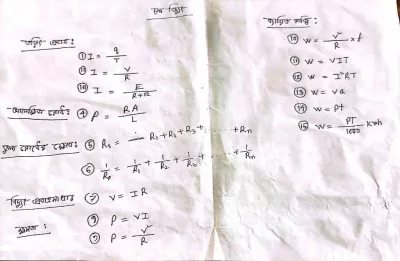 চল বিদ্যুৎ
তড়িৎ প্রবাহ :
① I = q/T
② I = V/R
③ I = E/R+r
আপেক্ষিক রোধ : ④ ρ = RA/L
⑤ Rs = R₁+R₂+R₃+.......+Rn
⑥ 1/Rp = 1/R₁ + 1/R₂ + 1/R₃ + ...... + 1/Rn
⑦ V = IR
ক্ষমতা : ⑧ P = VI
⑨ P = V²/R
⑩ W = V²/R × t
⑪ W = VIT
⑫ W = I²RT
⑬ W = VQ
⑭ W = Pt
⑮ W = PT/1000 kwh